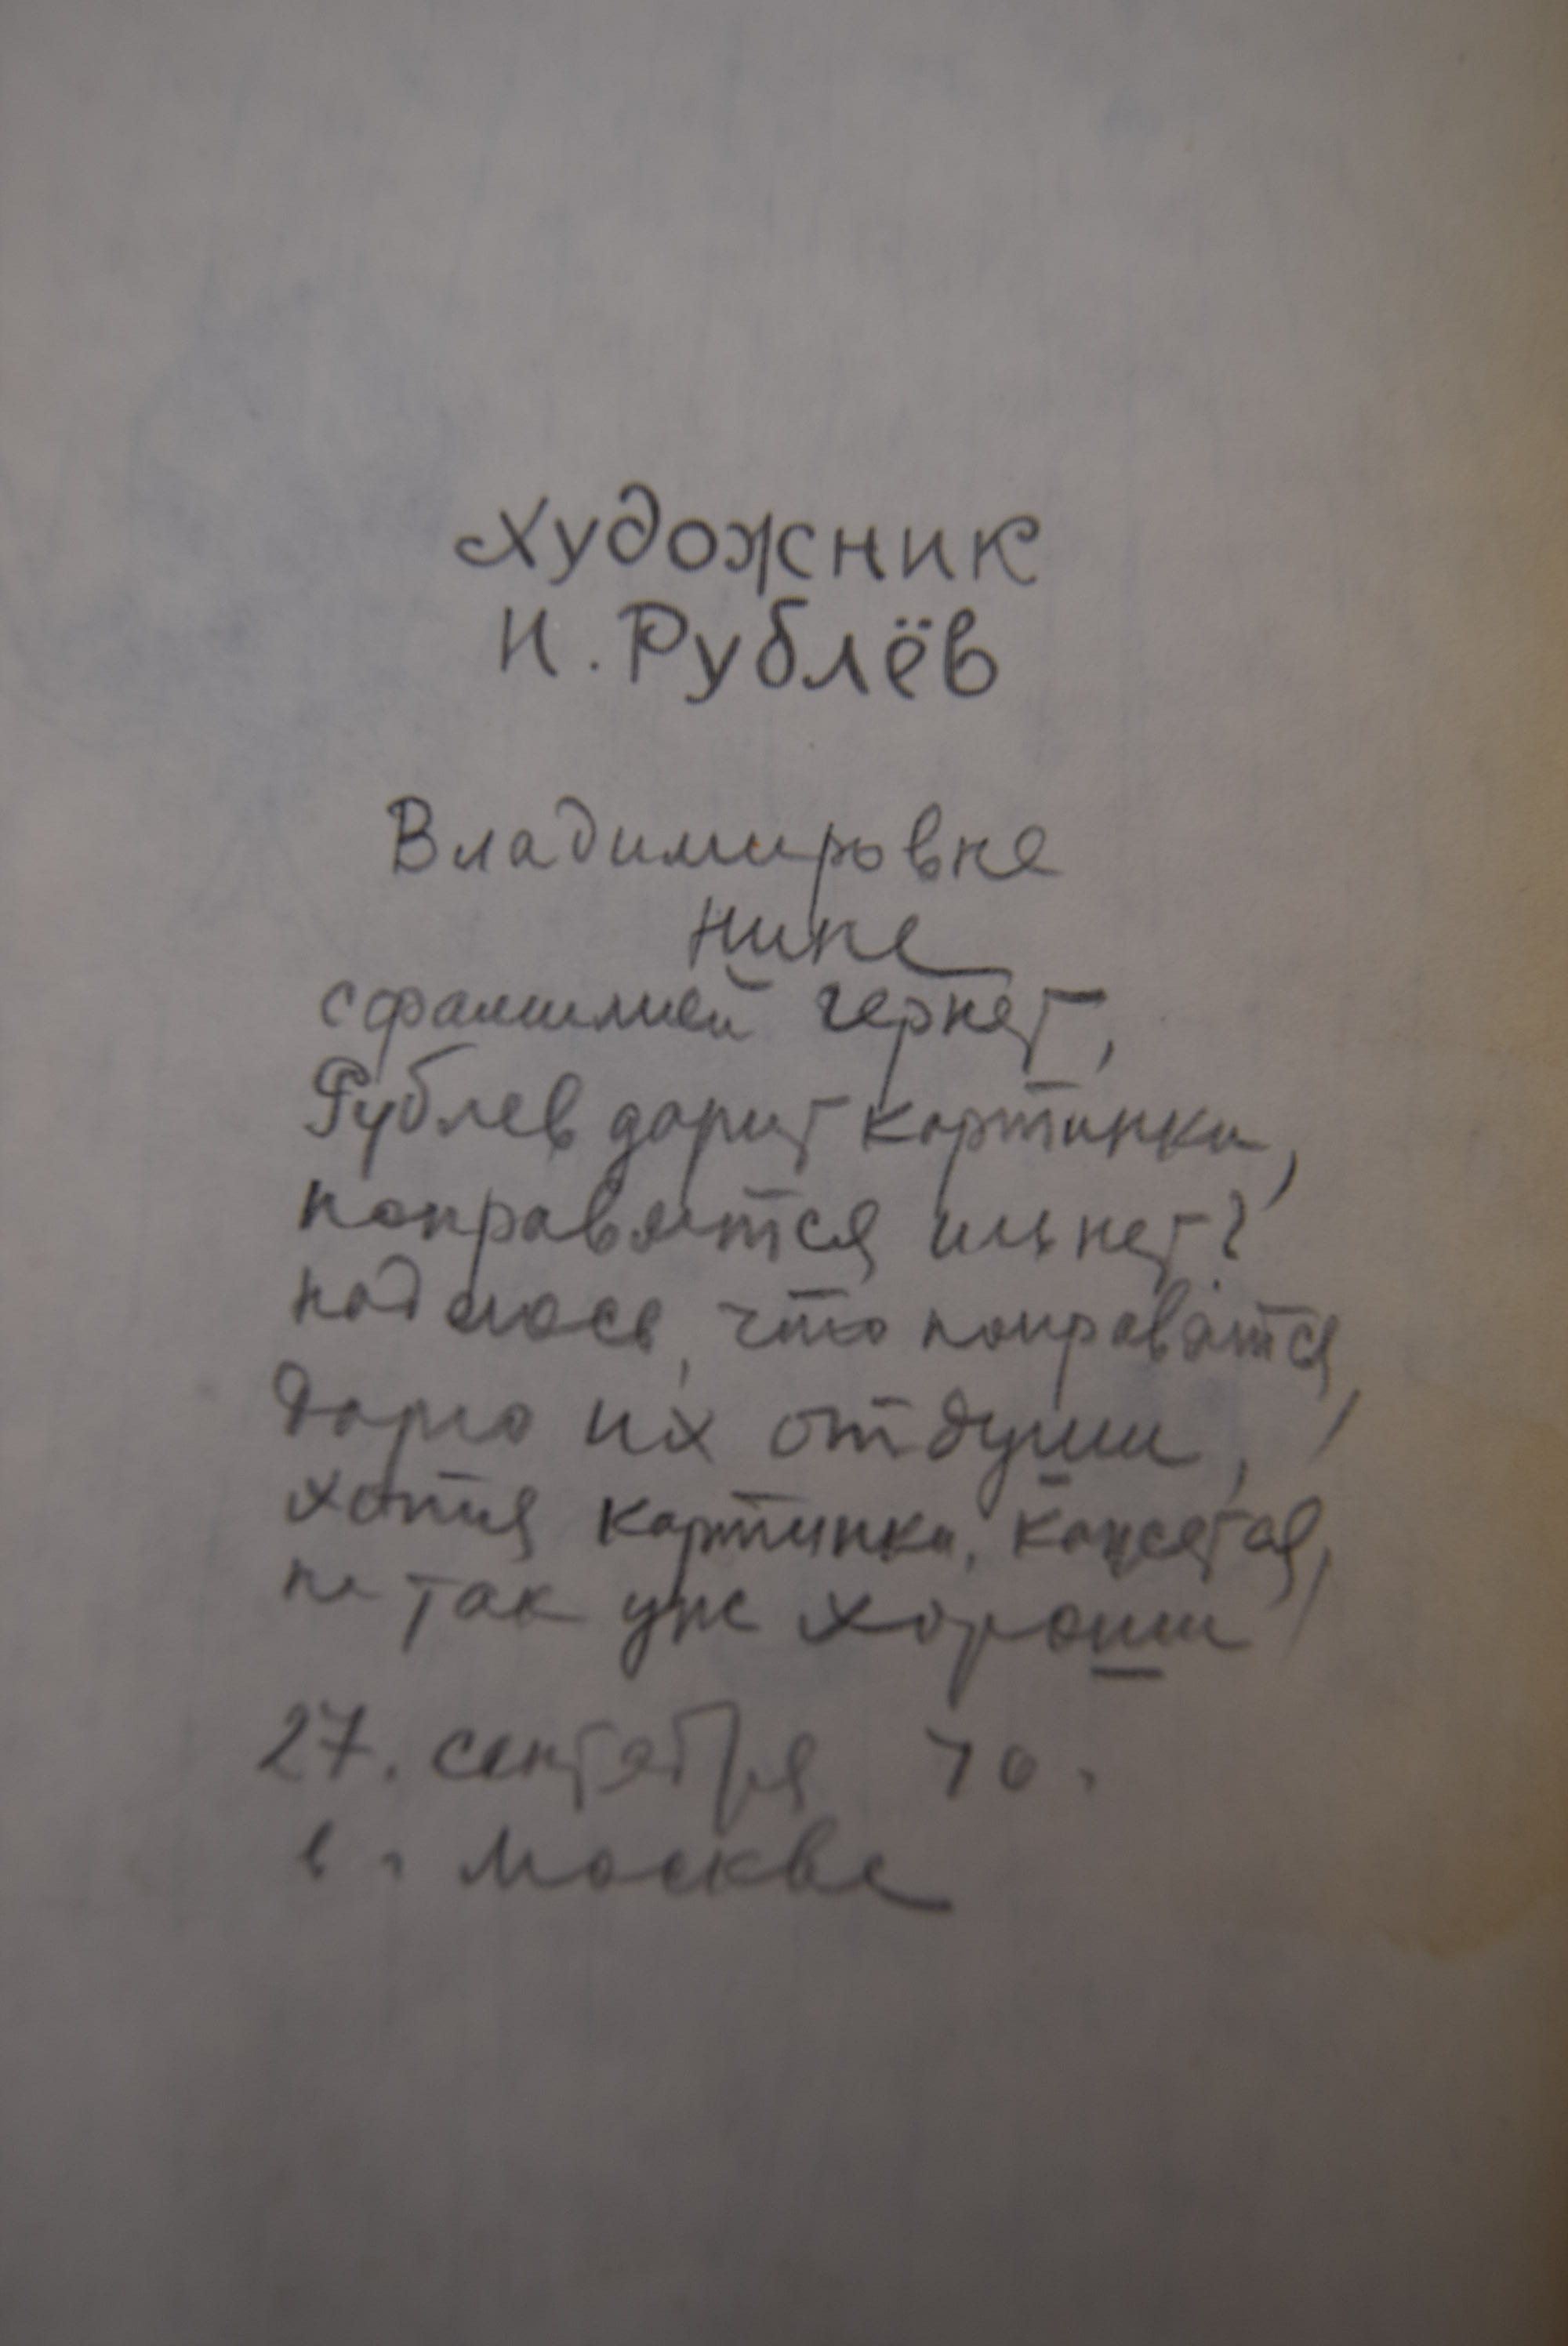 Художник
Н. Рублёв
Владимировне
Нине
с фамилией Гернет,
Рублев дарит картинки,
понравятся иль нет?
надеюсь, что понравятся,
дарю их от души,
хотя картинки, кажется,
не так уж хороши
27. сентября 70.
в г. Москве